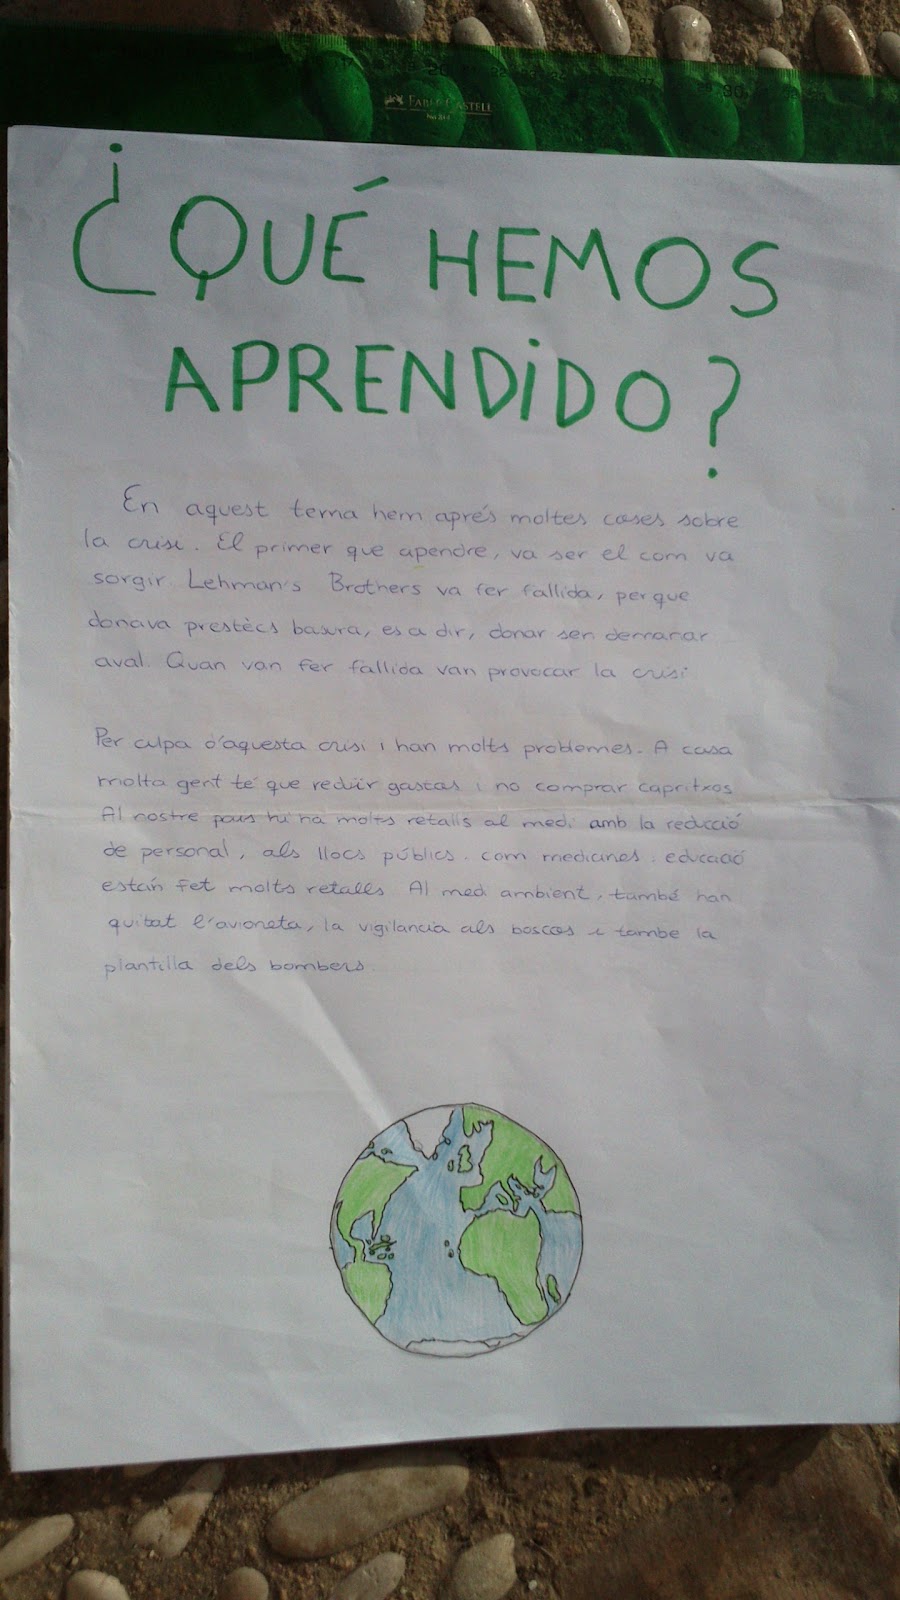 FABER-CASTELL
¿QUÉ HEMOS
APRENDIDO?
En aquest tema hem aprés moltes coses sobre
la crisi. El primer que apendre, va ser el com va
sorgir. Lehman's Brothers va fer fallida, perque
donava prestècs basura, es a dir, donar sen demanar
aval. Quan van fer fallida van provocar la crisi
Per culpa d'aquesta crisi i han molts problemes. A casa
molta gent té que reduïr gastas i no comprar capritxos
Al nostre pous hi ha molts retalls al medi amb la reducció
de personal, als llocs públics. com medicines. educació
están fet molts retalls Al medi ambient, també han
quitat l'avioneta, la vigilancia als boscos i tambe la
plantilla dels bombers.